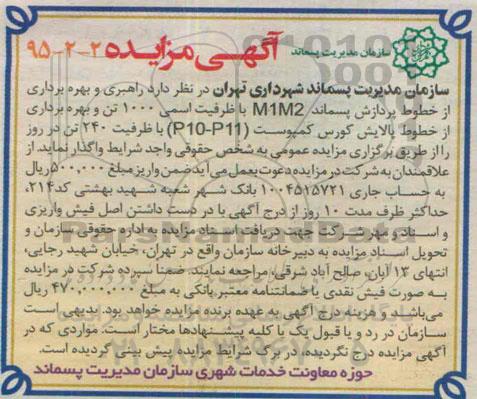 سازمان مدیریت پسماند
آگهی مزایده ۲-۲-۹۵
سازمان مدیریت پسماند شهرداری تهران در نظر دارد راهبری و بهره برداری
از خطوط پردازش پسماند M1M2 با ظرفیت اسمی ۱۰۰۰ تن و بهره برداری
از خطوط پالایش کورس کمپوست (P10-P11) با ظرفیت ۲۴۰ تن در روز
را از طریق برگزاری مزایده عمومی به شخص حقوقی واجد شرایط واگذار نماید. از
علاقمندان به شرکت در مزایده دعوت بعمل می آید ضمن واریز مبلغ ۵۰۰,۰۰۰ ریال
به حساب جاری ۱۰۰۴۵۱۵۷۲۱ بانک شهر شعبه شهید بهشتی کد ۲۱۴،
حداکثر ظرف مدت ۱۰ روز از درج آگهی با در دست داشتن اصل فیش واریزی
و اسناد و مهر شرکت جهت دریافت اسناد مزایده به اداره حقوقی سازمان و
تحویل اسناد مزایده به دبیرخانه سازمان واقع در تهران، خیابان شهید رجایی،
انتهای ۱۳ آبان، صالح آباد شرقی، مراجعه نمایند. ضمنا سپرده شرکت در مزایده
به صورت فیش نقدی یا ضمانتنامه معتبر بانکی به مبلغ ۴۷۰,۰۰۰,۰۰۰ ریال
می باشد و هزینه درج آگهی به عهده برنده مزایده خواهد بود. بدیهی است
سازمان در رد و یا قبول یک یا کلیه پیشنهادها مختار است. مواردی که در
آگهی مزایده درج نگردیده در برگ شرایط مزایده پیش بینی گردیده است.
حوزه معاونت خدمات شهری سازمان مدیریت پسماند